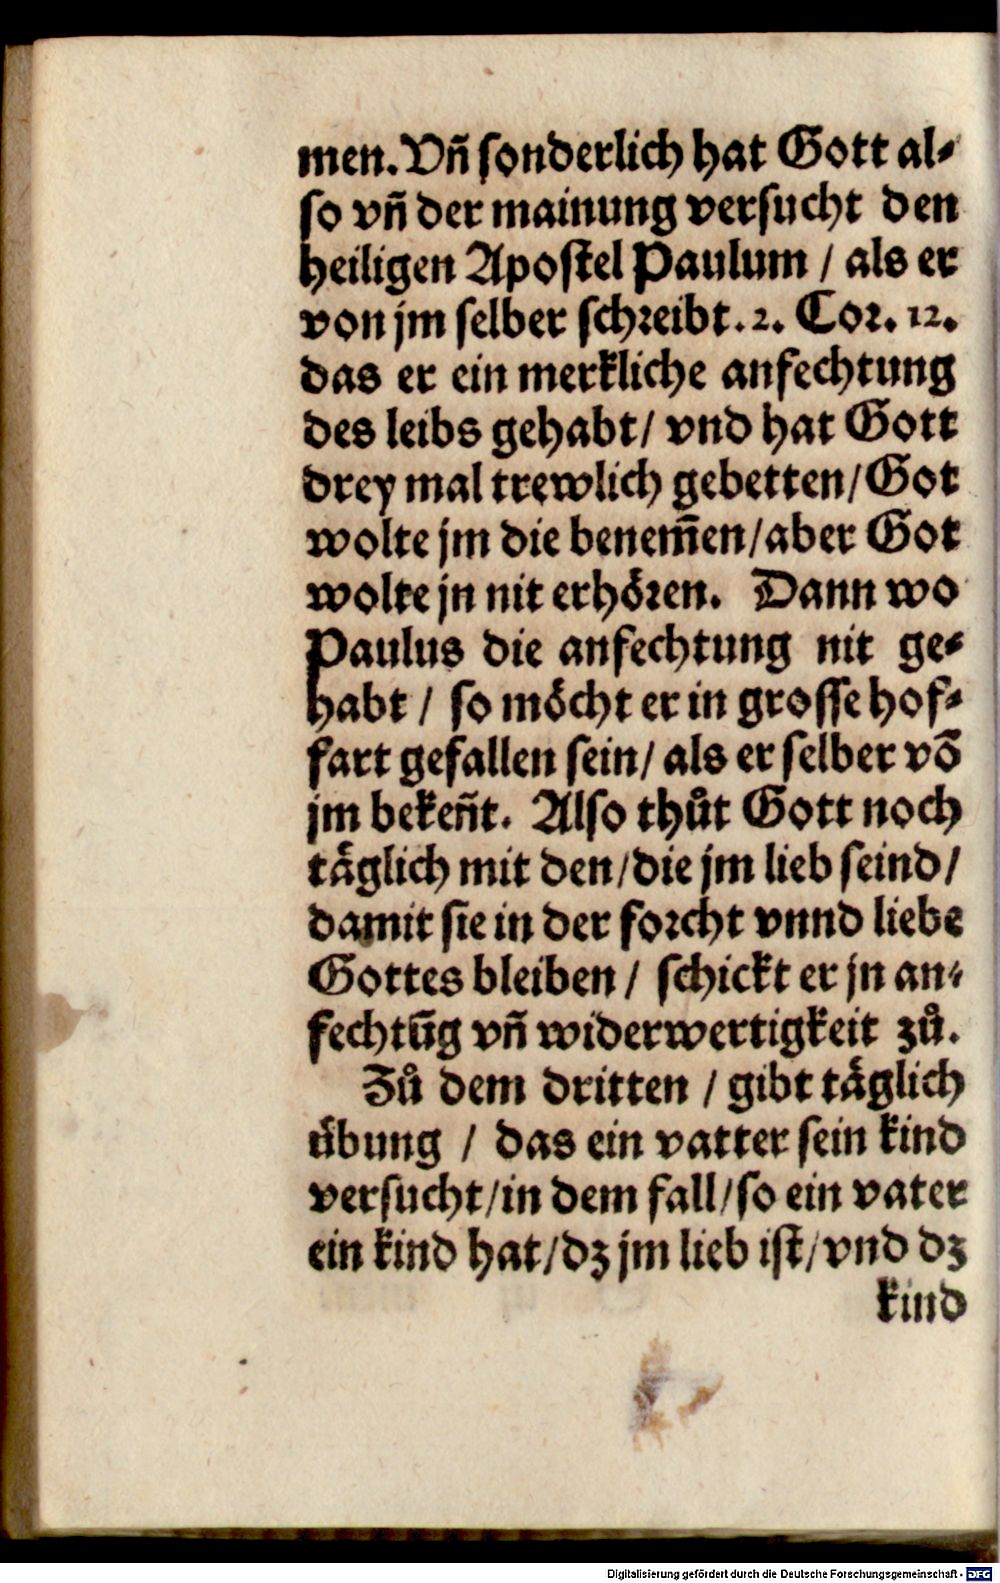 men. Vñ sonderlich hat Gott al⸗
so vñ der mainung versucht den
heiligen Apostel Paulum / als er
von jm selber schreibt. 2. Cor. 12.
das er ein merkliche anfechtung
des leibs gehabt / vnd hat Gott
drey mal trewlich gebetten / Got
wolte jm die benem̃en / aber Got
wolte jn nit erhören. Dann wo
Paulus die anfechtung nit ge⸗
habt / so möcht er in grosse hof⸗
fart gefallen sein / als er selber võ
jm bekeñt. Also thůt Gott noch
täglich mit den / die jm lieb seind /
damit sie in der forcht vnnd liebe
Gottes bleiben / schickt er jn an⸗
fechtũg vñ widerwertigkeit zů.
Zů dem dritten / gibt täglich
übung / das ein vatter sein kind
versucht / in dem fall / so ein vater
ein kind hat / dz jm lieb ist / vnd dz
kind
Digitalisierung gefördert durch die Deutsche Forschungsgemeinschaft - DFG